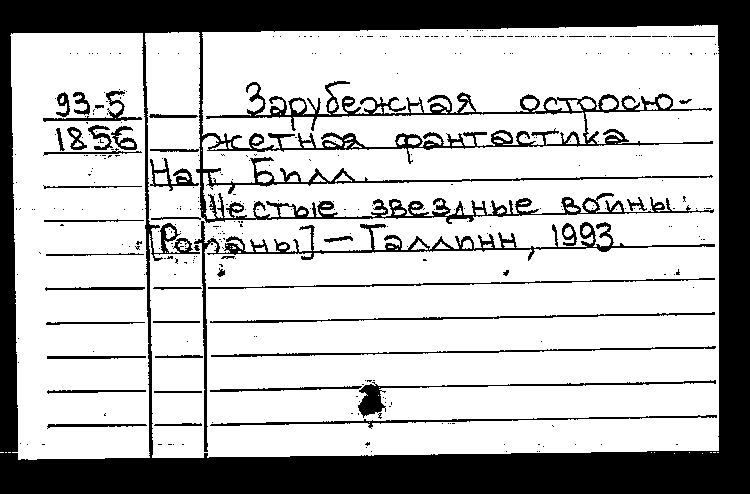 93-5 Зарубежная остросю-
1856 жетная фантастика.
Нат, Билл.
Шестые звездные войны:
[Романы] — Таллинн, 1993.